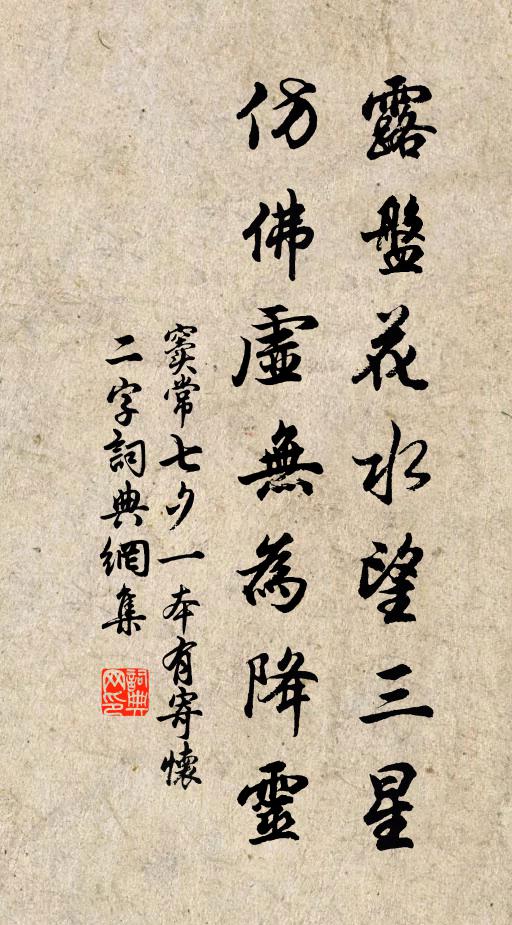 露盤花水望三星
仿佛虛無為降靈
竇常七夕一本有寄懷
二字詞典網集
詞典网印